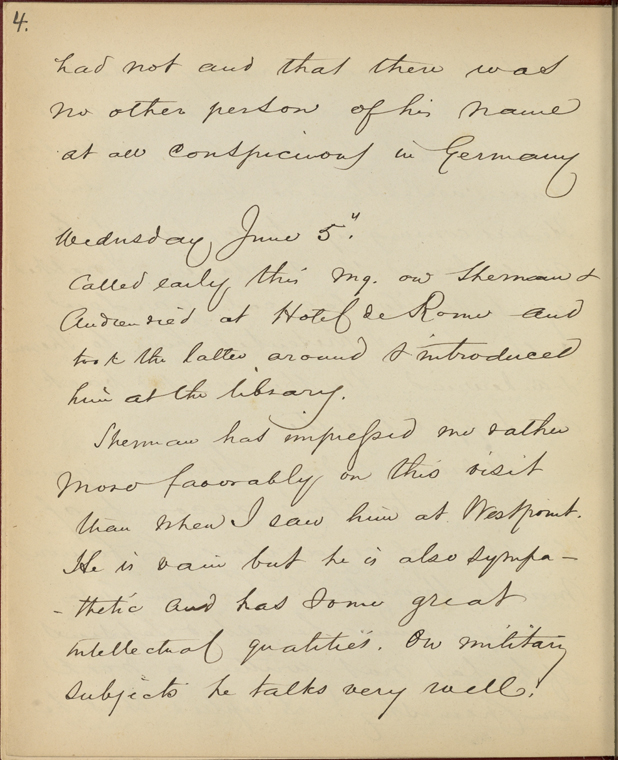 4.
had not and that there was
no other person of his name
at all conspicuous in Germany
Wednesday June 5"
Called early this mg. on Sherman &
Audenried at Hotel de Rome and
took the latter around & introduced
him at the library.
Sherman has impressed me rather
more favorably on this visit
than when I saw him at Westpoint.
He is vain but he is also sympa-
-thetic and has some great
intellectual qualities. On military
subjects he talks very well.